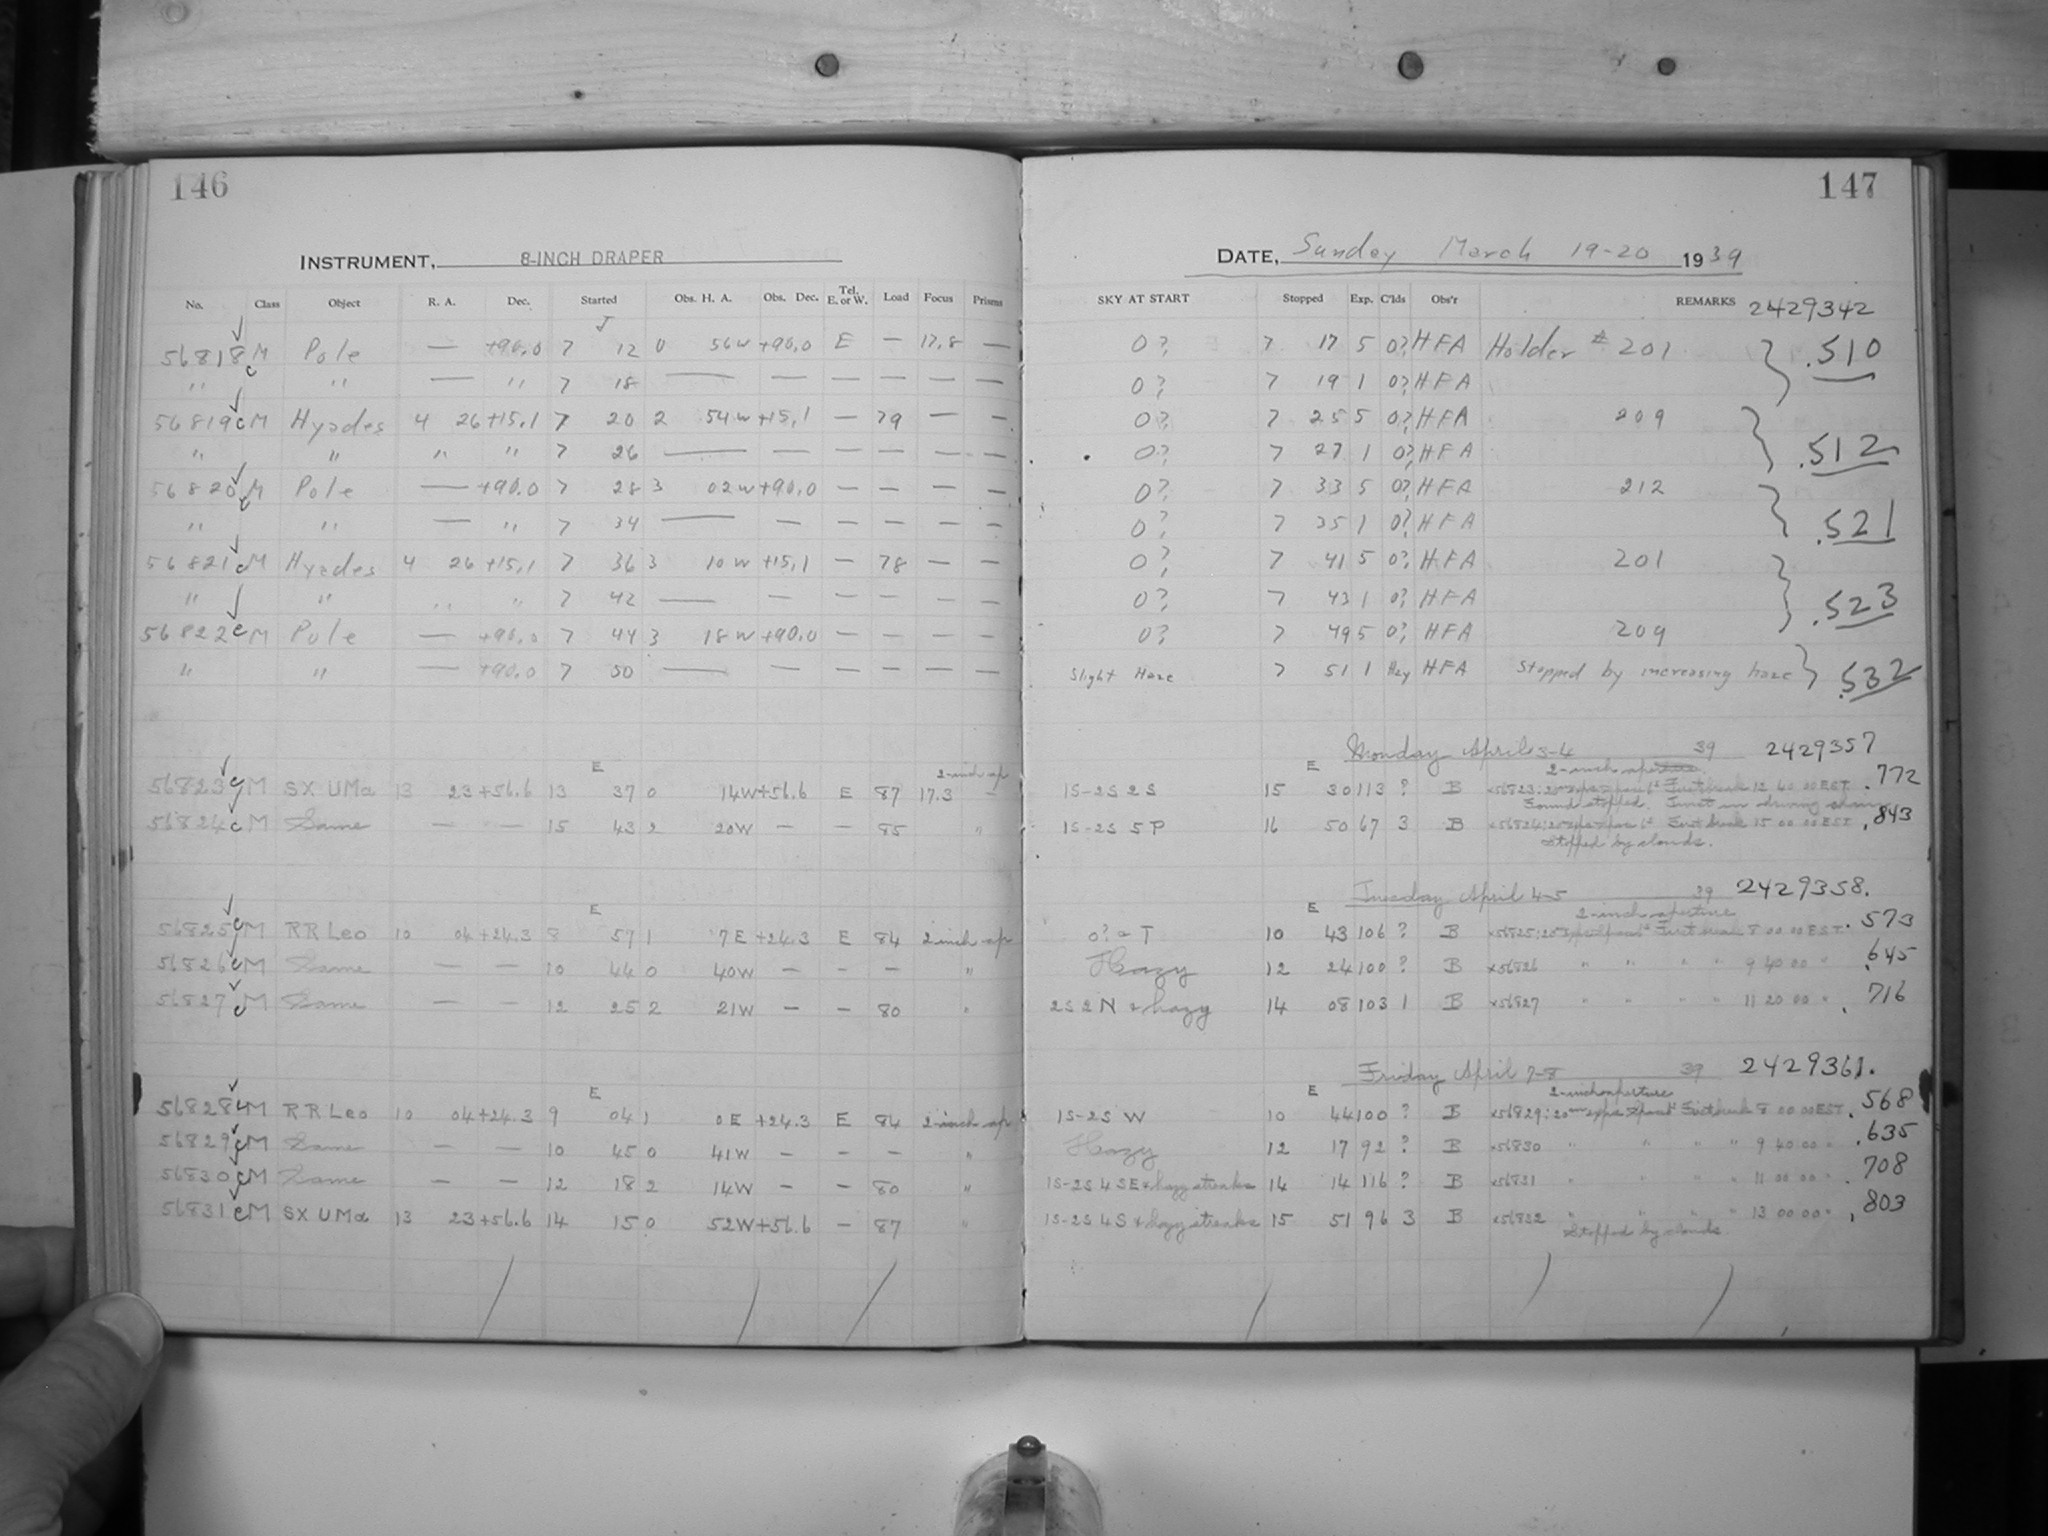 146
INSTRUMENT, 8-INCH DRAPER
No. Class Object R. A. Dec. Started Obs. H. A. Obs. Dec. Tel. E. or W. Load Focus Prisms
J
56818 c M Pole — +90.0 7 12 0 56W +90.0 E — 17.8 —
" " — " 7 18 — — — — — —
56819 c M Hyades 4 26 +15.1 7 20 2 54W +15.1 — 79 — —
" " " " 7 26 — — — — — —
56820 c M Pole — +90.0 7 28 3 02W +90.0 — — — —
" " — " 7 34 — — — — — —
56821 c M Hyades 4 26 +15.1 7 36 3 10W +15.1 — 78 — —
" " " " 7 42 — — — — — —
56822 c M Pole — +90.0 7 44 3 18W +90.0 — — — —
" " — +90.0 7 50 — — — — — —
E 2-inch ap
56823 c M SX UMa 13 23 +56.6 13 37 0 14W +56.6 E 87 17.3 —
56824 c M Same — — 15 43 2 20W — — 85 "
E
56825 c M RR Leo 10 04 +24.3 8 57 1 7E +24.3 E 84 2-inch ap
56826 c M Same — — 10 44 0 40W — — — "
56827 c M Same — — 12 25 2 21W — — 80 "
E
56828 c M RR Leo 10 04 +24.3 9 04 1 0E +24.3 E 84 2-inch ap
56829 c M Same — — 10 45 0 41W — — — "
56830 c M Same — — 12 18 2 14W — — 80 "
56831 c M SX UMa 13 23 +56.6 14 15 0 52W +56.6 — 87 "
147
DATE, Sunday March 19-20 1939
SKY AT START Stopped Exp. C'lds Obs'r REMARKS 2429342
0? 7 17 5 0? HFA Holder # 201 .510
0? 7 19 1 0? HFA
0? 7 25 5 0? HFA 209 .512
0? 7 27 1 0? HFA
0? 7 33 5 0? HFA 212 .521
0? 7 35 1 0? HFA
0? 7 41 5 0? HFA 201 .523
0? 7 43 1 0? HFA
0? 7 49 5 0? HFA 209
Slight Haze 7 51 1 Hzy HFA Stopped by increasing haze .532
Monday April 3-4 39 2429357
E 2-inch aperture
1S-2S 2S 15 30 113 ? B x56823: First break 12 40 00 EST .772
Found stopped.
1S-2S 5P 16 50 67 3 B x56824: First break 15 00 00 EST .843
Stopped by clouds.
Tuesday April 4-5 39 2429358.
E 2-inch aperture
0? a T 10 43 106 ? B x56825: First break 8 00 00 EST .573
Hazy 12 24 100 ? B x56826 " " " " 9 40 00 " .645
2S 2N & hazy 14 08 103 1 B x56827 " " " " 11 20 00 " .716
Friday April 7-8 39 2429361.
E 2-inch aperture
1S-2S W 10 44 100 ? B x56829: First break 8 00 00 EST .568
Hazy 12 17 92 ? B x56830 " " " " 9 40 00 " .635
1S-2S 4SE & hazy streaks 14 14 116 ? B x56831 " " " " 11 00 00 " .708
1S-2S 4S & hazy streaks 15 51 96 3 B x56832 " " " " 13 00 00 " .803
Stopped by clouds